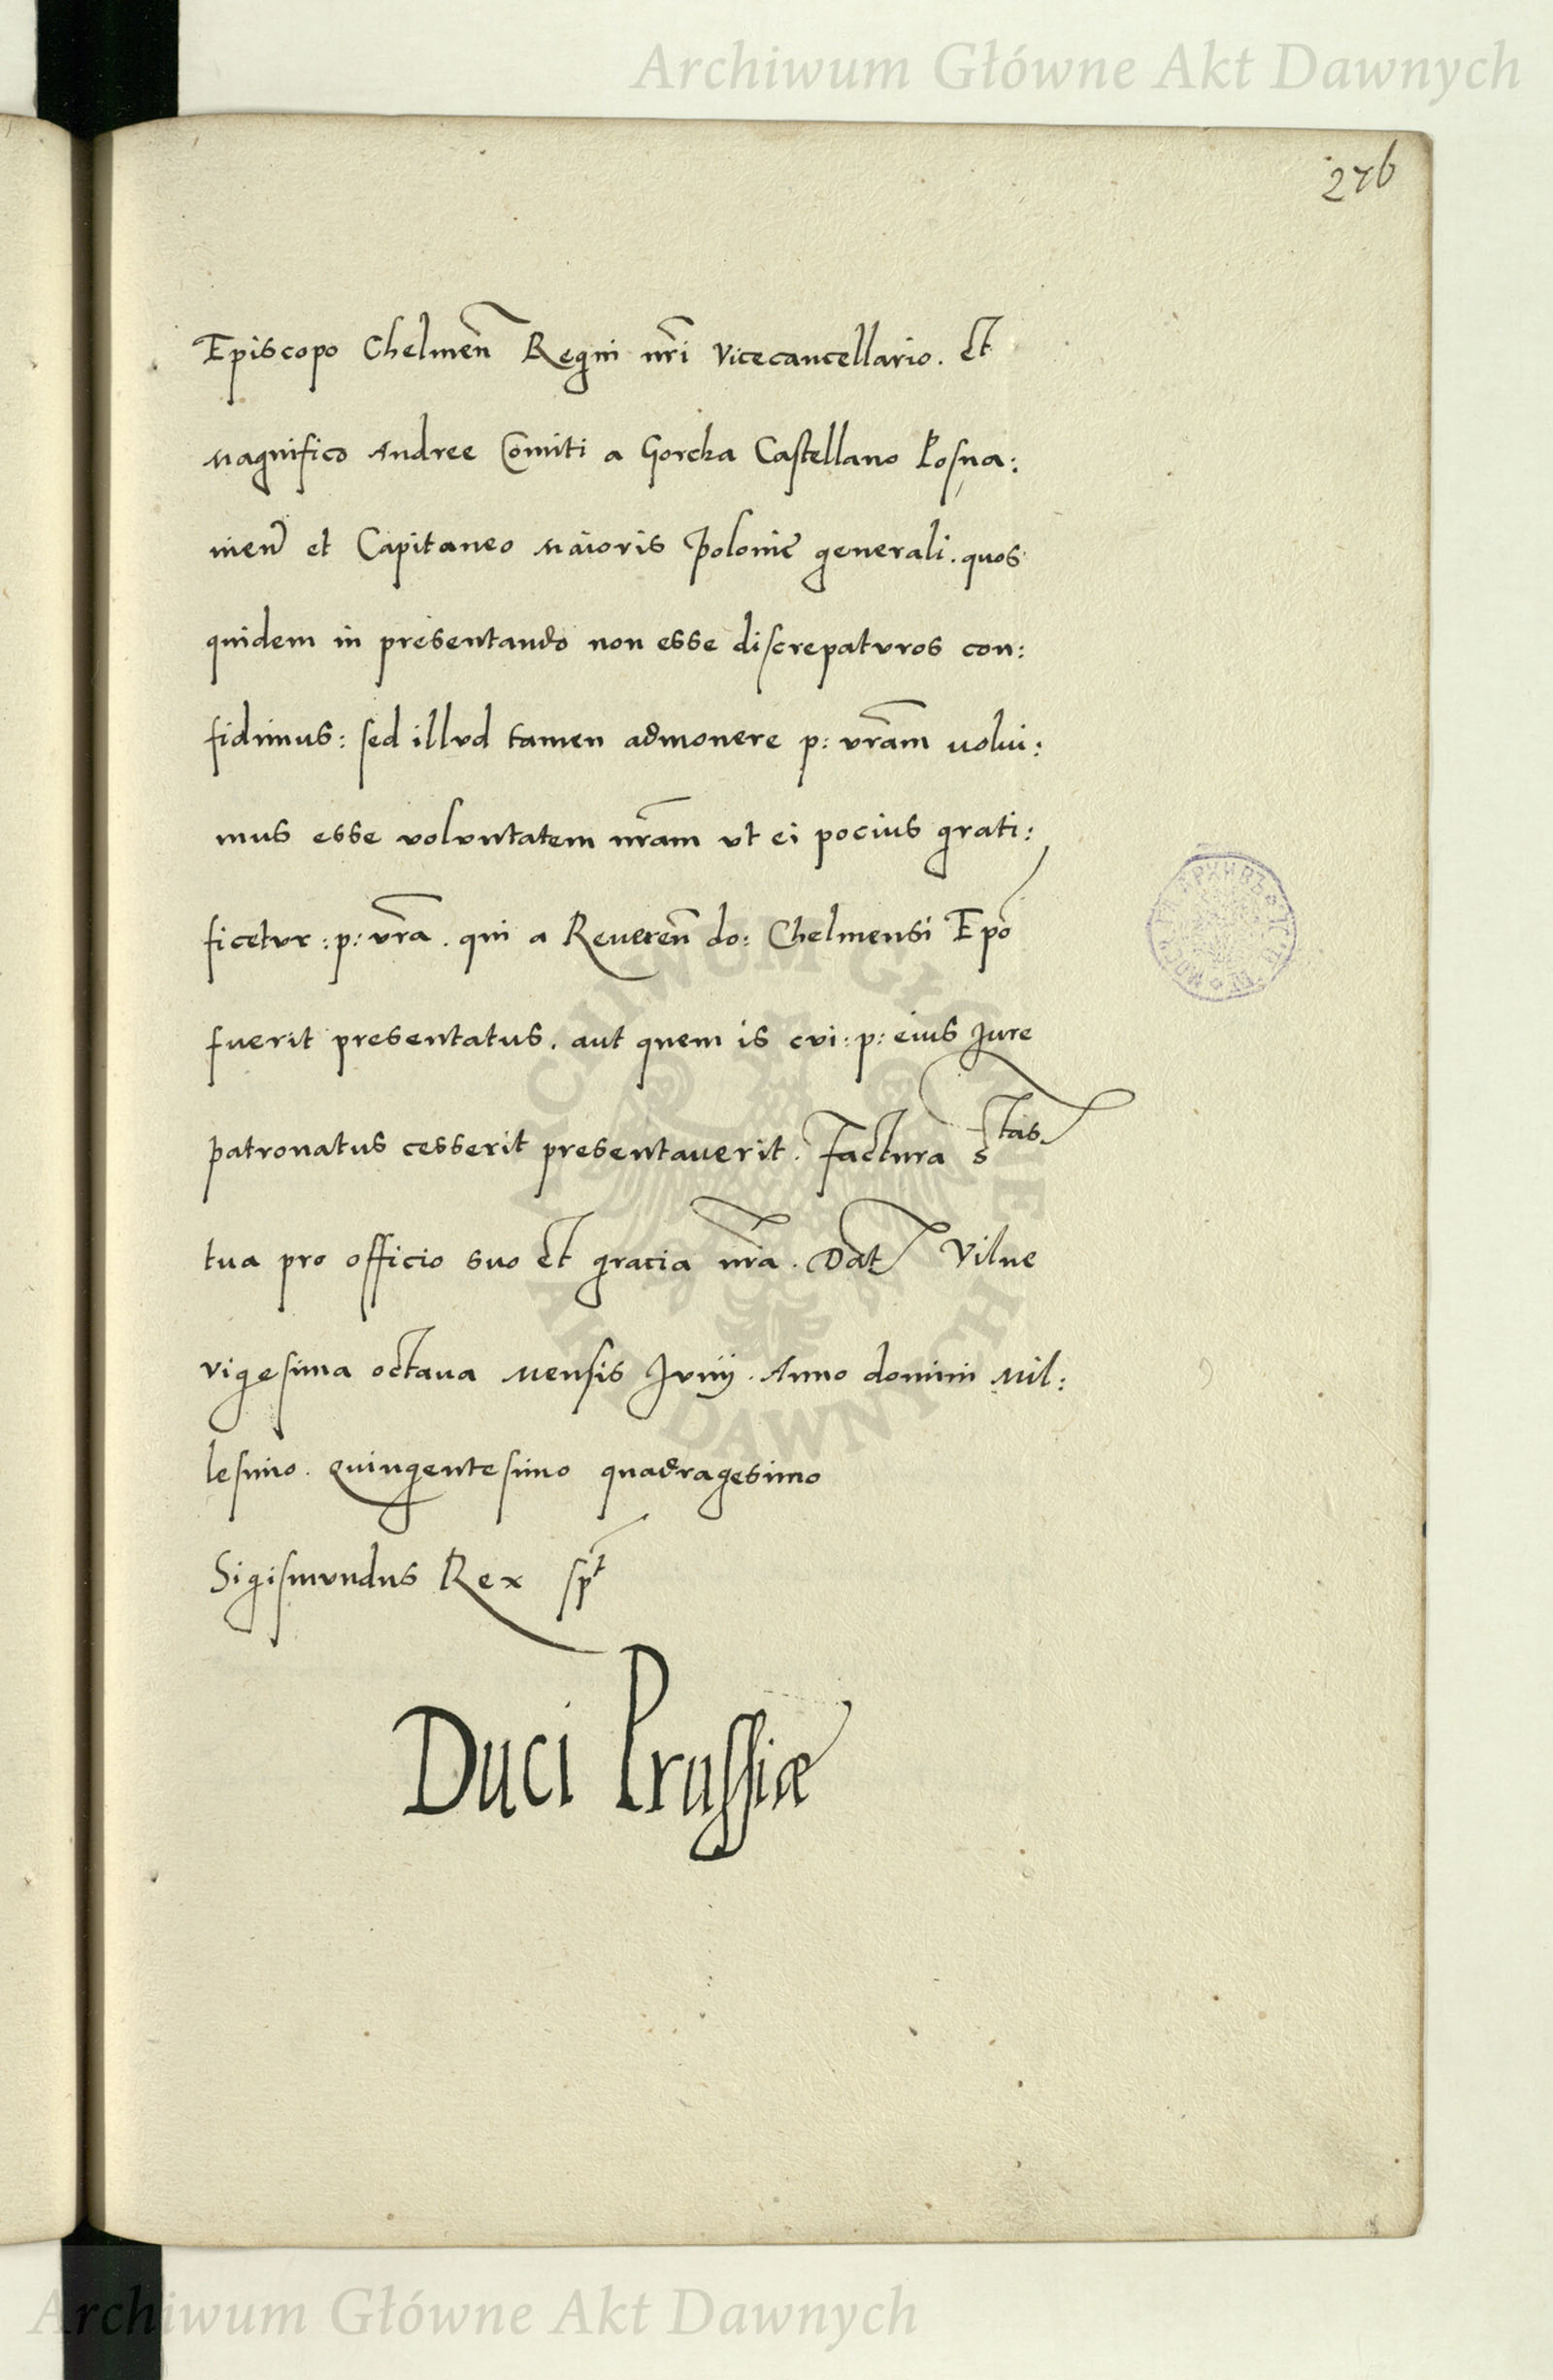 Archiwum Główne Akt Dawnych
276
Episcopo Chelmen̄ Regni nr̄i Vicecancellario. et
Magnifico Andree Comiti a Gorcka Castellano Posna:
nien̄ et Capitaneo Maioris Polonie generali. quos
quidem in presentando non esse discrepatvros con:
fidimus: sed illvd tamen admonere p: vr̄am uolui:
mus esse volvntatem nr̄am vt ei pocius grati:
ficetvr: p: vr̄a. qui a Reueren̄ do: Chelmensi Ep̄o
fverit presentatus. avt quem is cvi: p: eius Jure
patronatus cesserit presentauerit. Factura s̄tas
tua pro officio suo et gracia nr̄a. Dat̄ Vilne
vigesima octaua Mensis Jvnij. Anno domini Mil:
lesimo. Qvingentesimo quadragesimo
Sigismvndus Rex sp̄t
Duci Prussiæ
ARCHIWUM GŁÓWNE
AKT DAWNYCH
Archiwum Główne Akt Dawnych